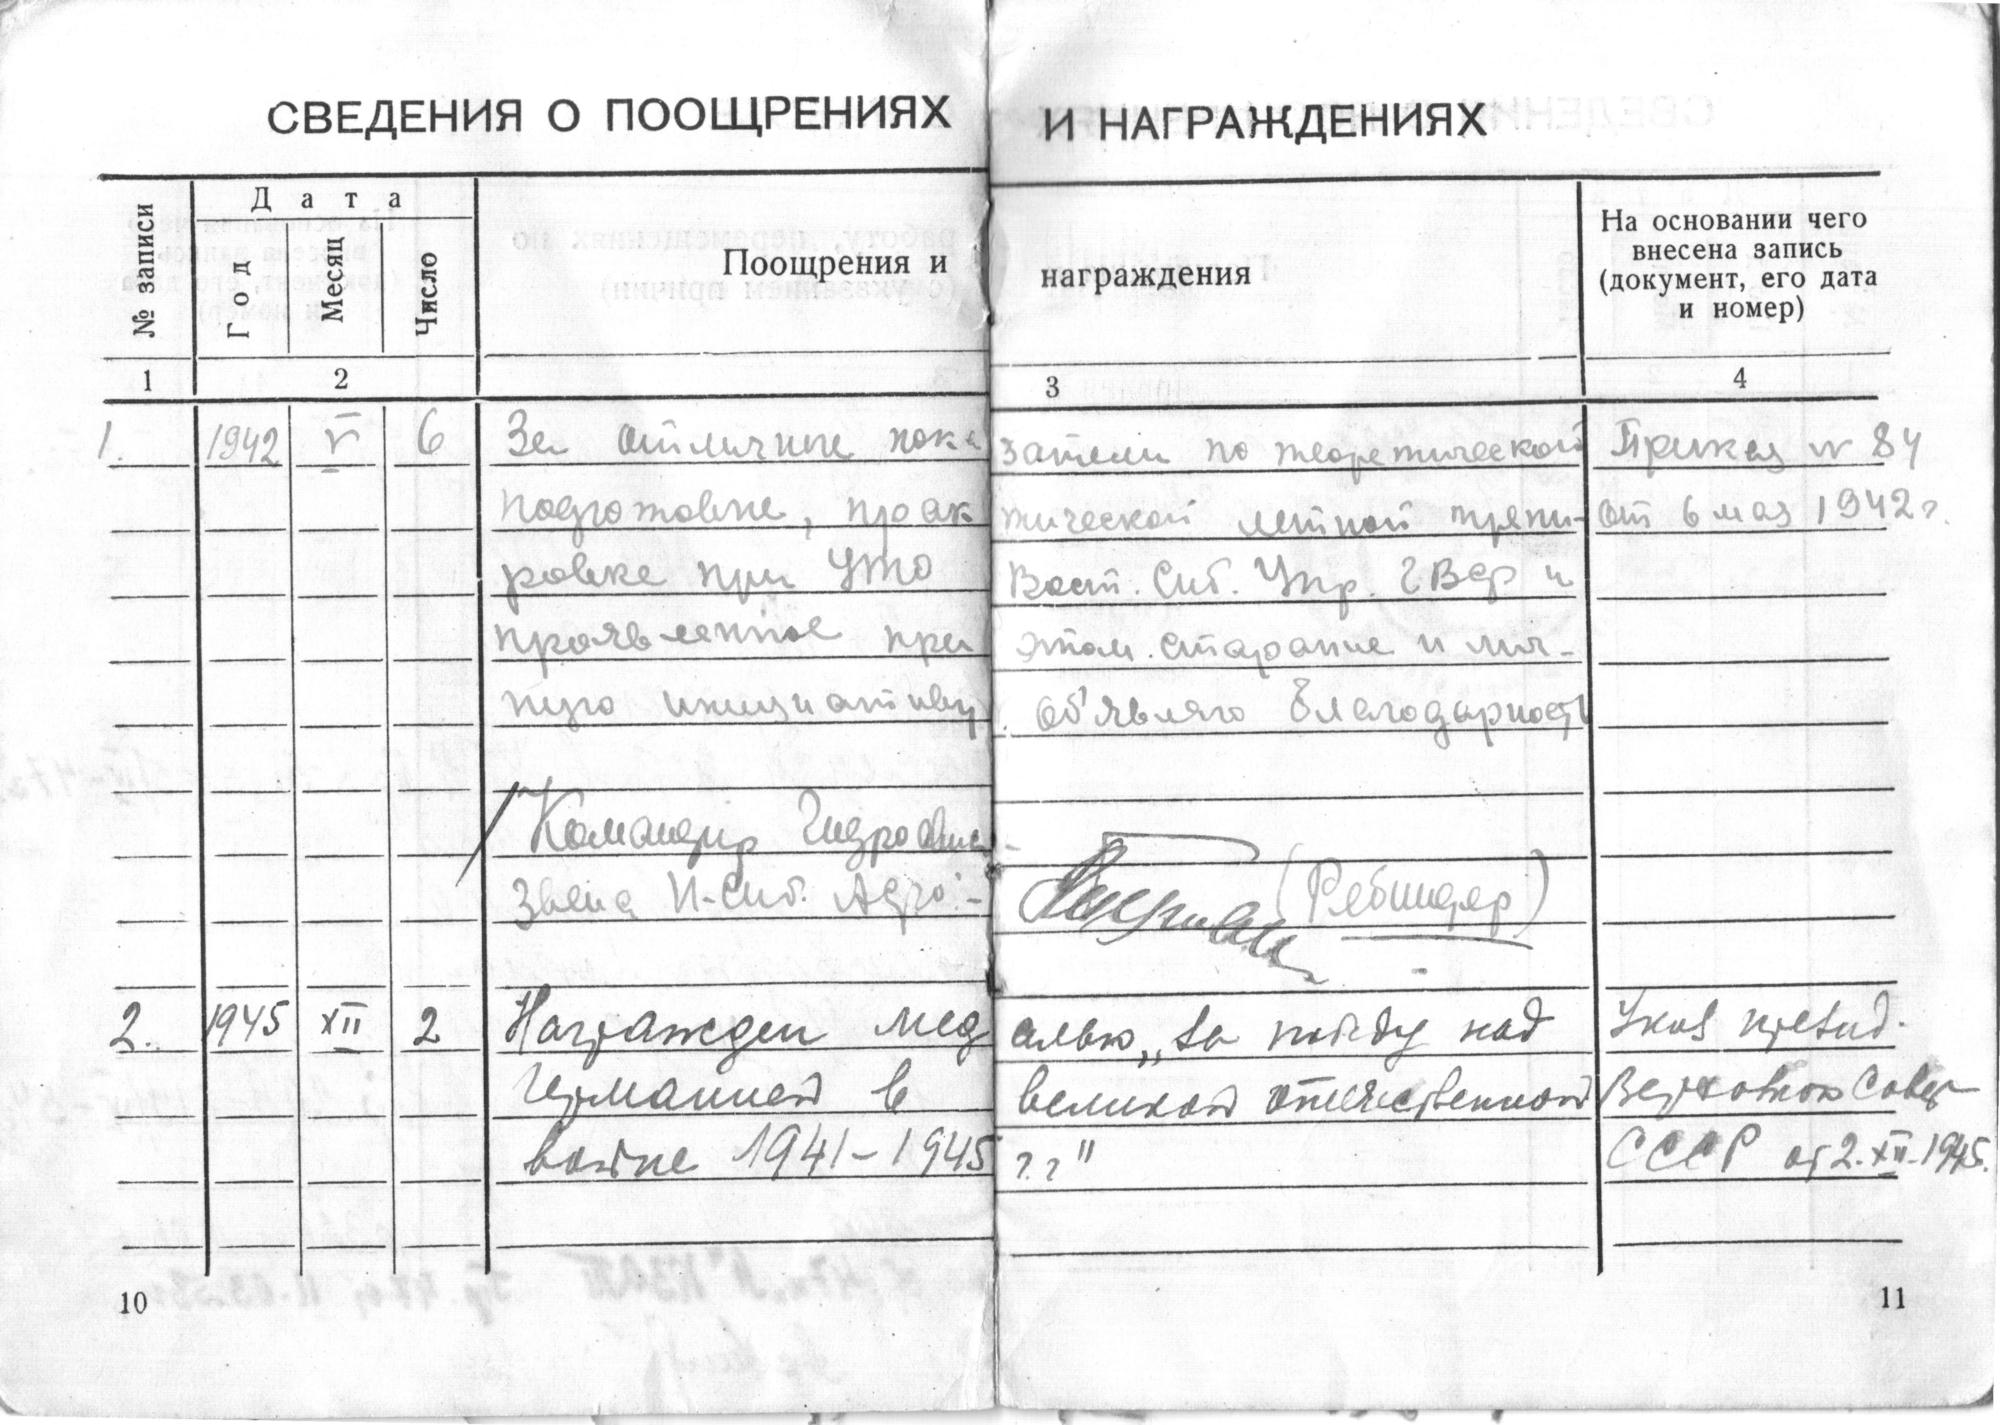 СВЕДЕНИЯ О ПООЩРЕНИЯХ И НАГРАЖДЕНИЯХ
№ записи
Дата
Год
Месяц
Число
Поощрения и награждения
На основании чего
внесена запись
(документ, его дата
и номер)
1 2 3 4
1. 1942 V 6 За отличные показатели по теоретической Приказ № 84
подготовке, практической летной трени- от 6 мая 1942 г.
ровке при УТО Вост. Сиб. Упр. ГВФ и
проявленное при этом старание и лич-
ную инициативу. Об'являю благодарность
Командир Гидроавиа-
Звена И-Сиб. Аэро- (Ребиндер)
2. 1945 XII 2 Награжден медалью „За победу над Указ презид.
Германией в великой отечественной Верховного Совет
войне 1941-1945 г.г" СССР от 2.XII.1945.
10
11